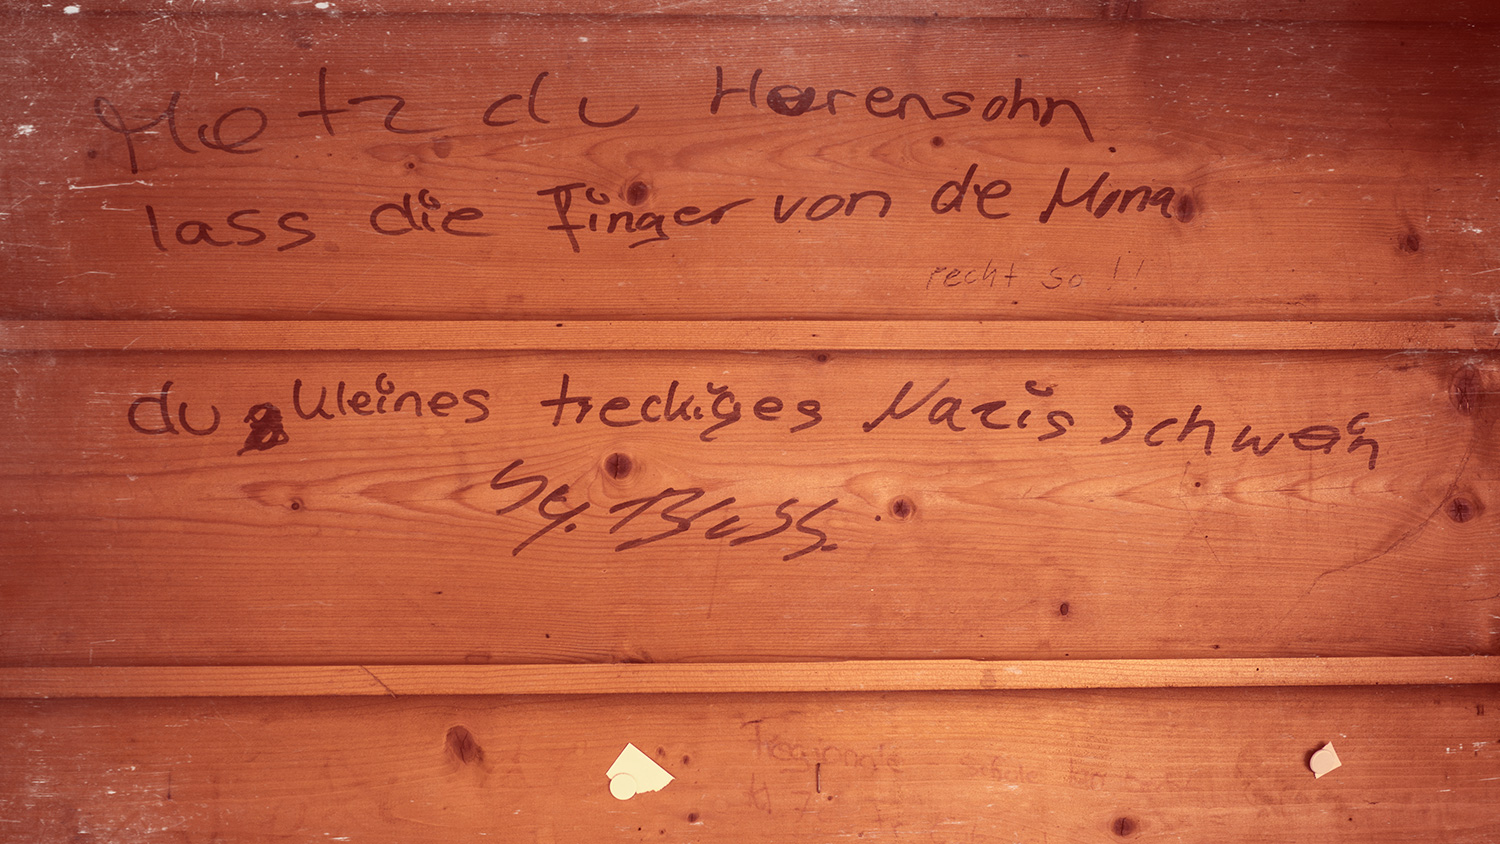 Motz du Horensohn
lass die Finger von de Mona
recht so !!
du kleines treckiges Nazis schwein
Regionale Schule
Kl 7